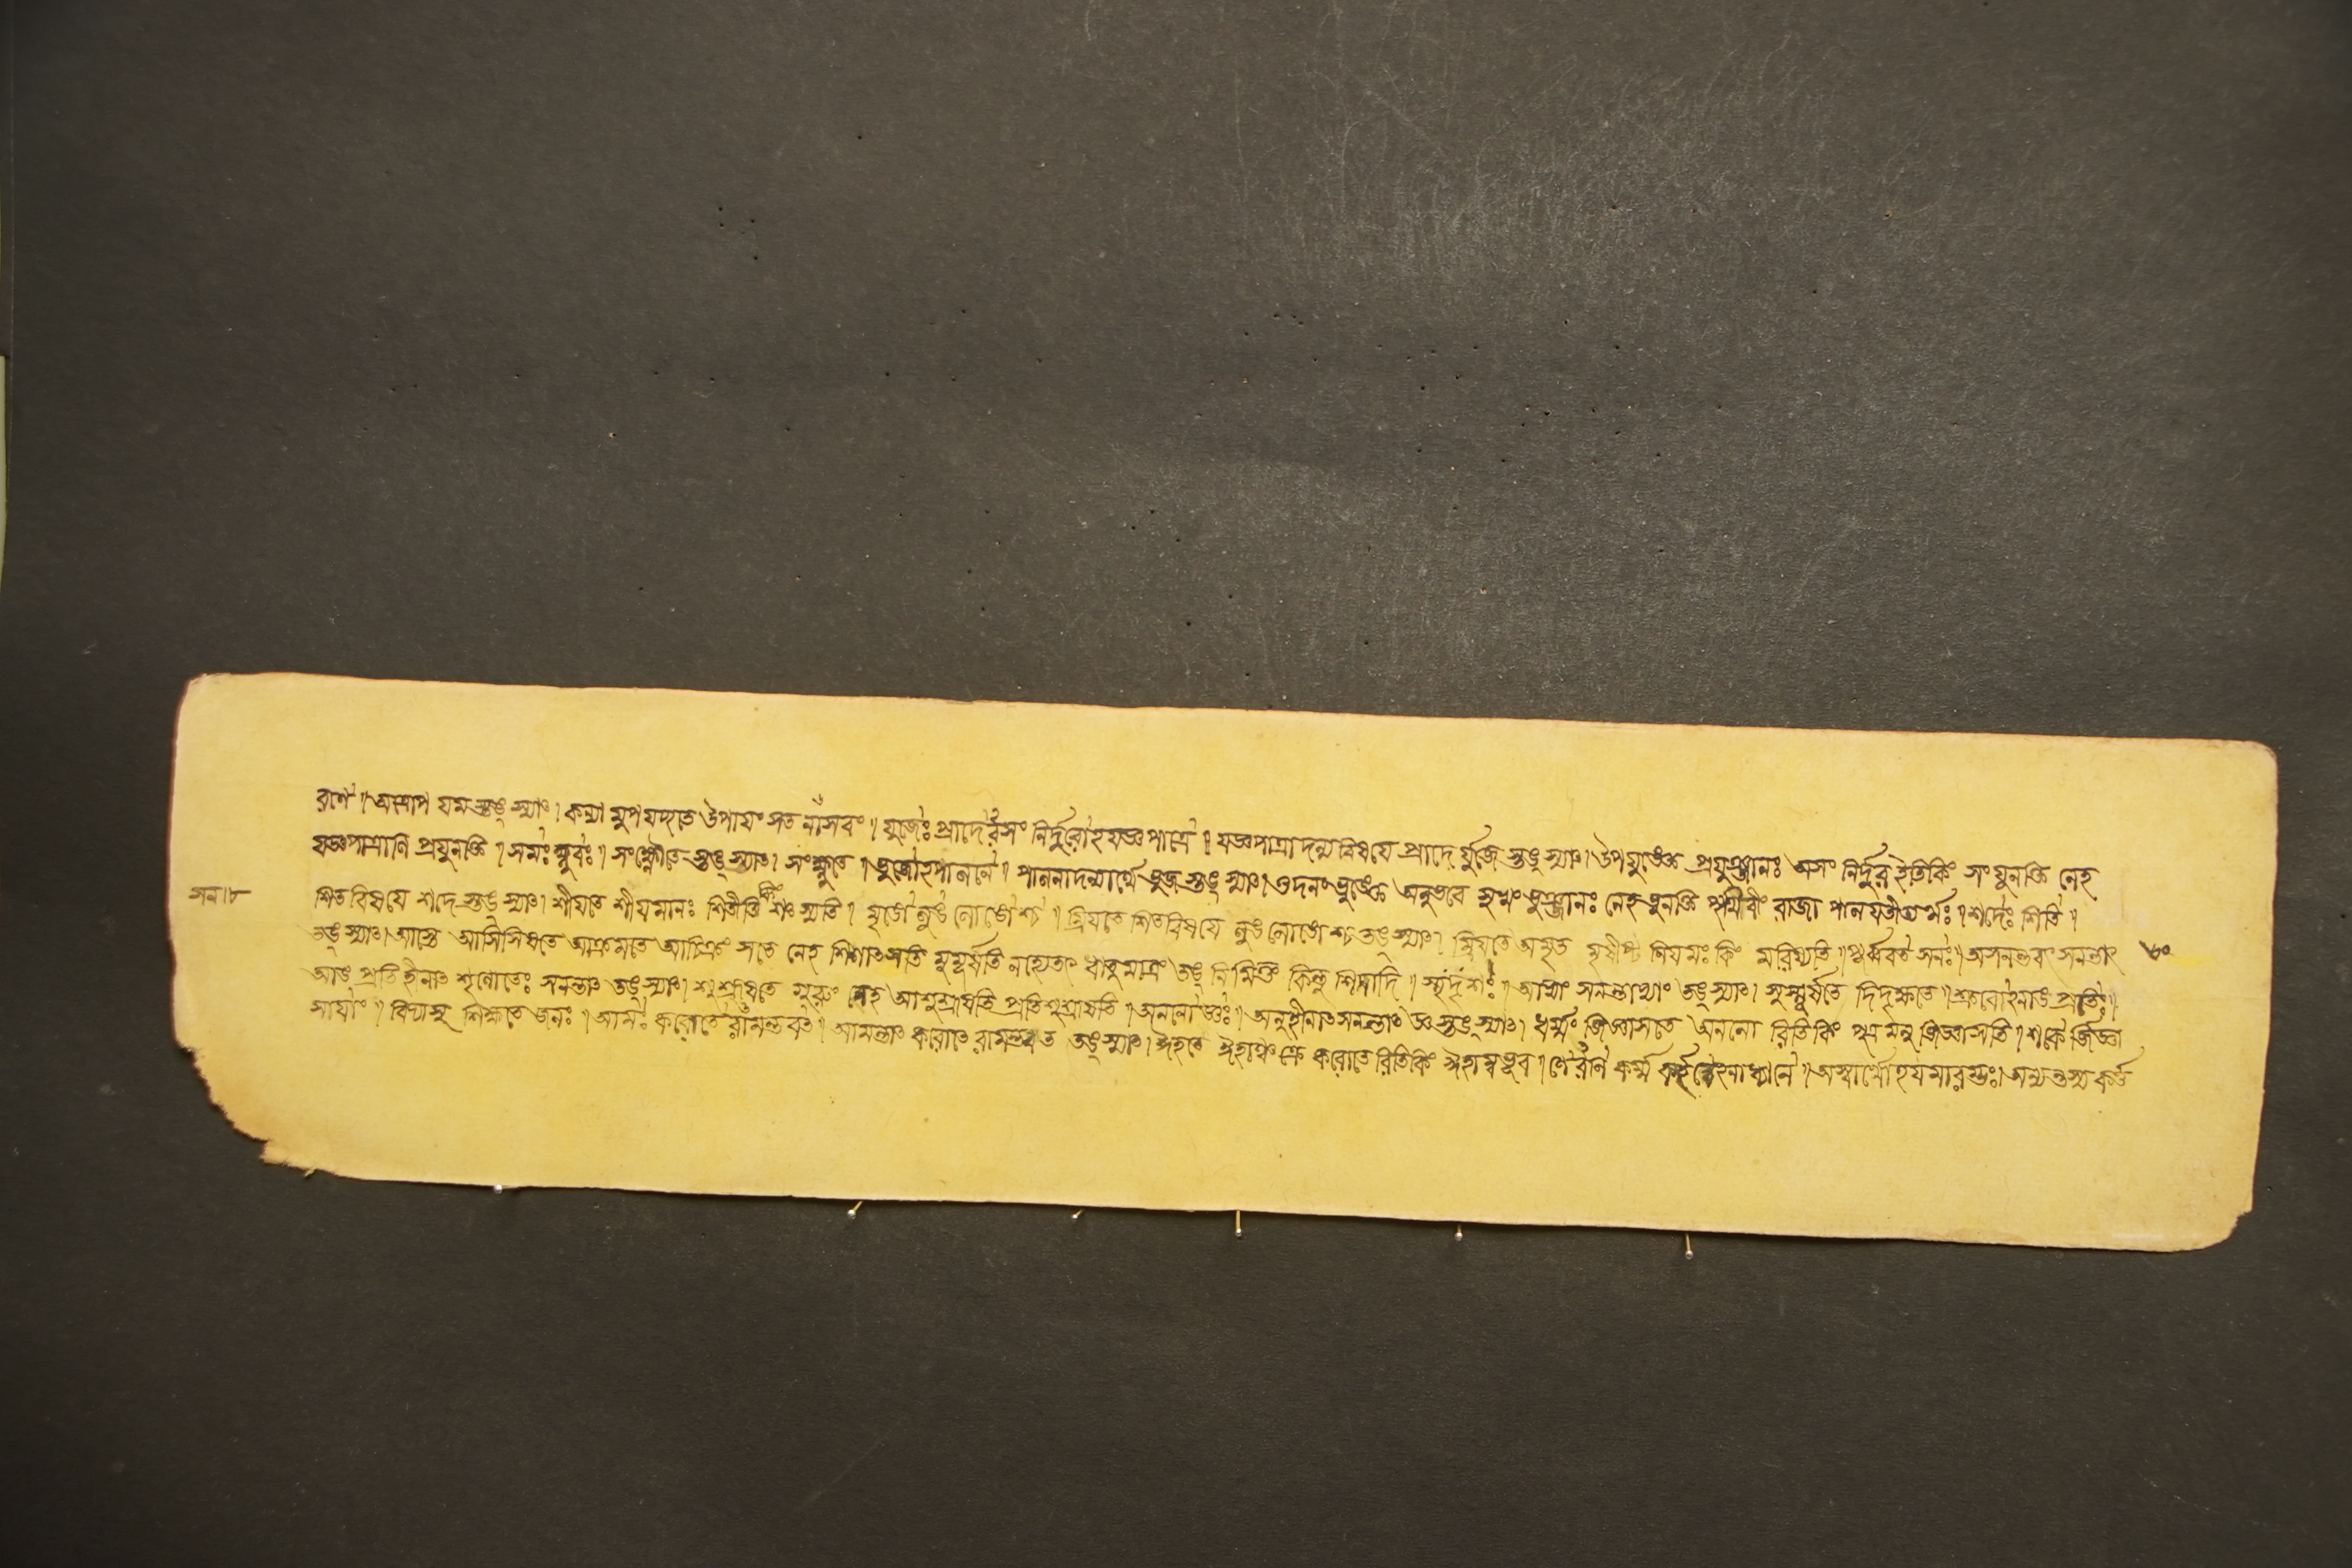 রণে ॥ অস্মাদুপ যমস্তঙ্ স্যাৎ । কন্যা মুপযচ্ছতে উপাযংসত নাসবং ॥ যুজেঃ প্রাদেরসং নির্দুরোঽযজ্ঞপাত্রে ॥ যজ্ঞপাত্রাদন্যবিষযে প্রাদে র্যুজে স্তঙ্ স্যাৎ । উপযুঙ্ক্তে প্রযুঞ্জানঃ অসং নির্দুর ইতিকিং সংযুনক্তি নেহ
যজ্ঞপাত্রাণি প্রযুনক্তি ॥ সমঃ ক্ষ্ণুবঃ ॥ সংক্ষ্ণৌতে স্তঙ্ স্যাৎ । সংক্ষ্ণুতে ॥ ভুজোঽপালনে ॥ পালনাদন্যার্থে ভুজ স্তঙ্ স্যাৎ । ওদনং ভুঙ্ক্তে অনুভবে সুখং ভুঞ্জানঃ নেহ ভুনক্তি পৃথিবীং রাজা পালযতীত্যর্থঃ ॥ শদেঃ শিতি ॥
শিতবিষযে শদে স্তঙ্ স্যাৎ । শীযতে শীযমানঃ শিতীতি কিং শৎস্যতি । মৃঙো লুঙ লোঙোশ্চ ॥ ম্রিযতে শিতবিষযে লুঙ লোঙোশ্চ তঙ্ স্যাৎ । ম্রিযতে অমৃত মৃষীষ্ট নিযমঃ কিং মরিষ্যতি ॥ পূর্ব্ববত সনঃ ॥ অসনন্তবৎ সনন্তাৎ
তঙ্ স্যাৎ । আস্তে আসিসিষতে আক্রমতে আচিক্রংসতে নেহ শিশৎসতি মুমূর্ষতি নহ্যেতৎ ধাতুমাত্রং তঙ্ নিমিত্তং কিন্তু শিদাদি ॥ স্মৃদৃশঃ ॥ আভ্যাং সনন্তাভ্যাং তঙ্ স্যাৎ । সুস্মূর্ষতে দিদৃক্ষতে ॥ শ্রুবোঽনাঙ প্রতিঃ ॥
আঙ প্রতি হীনাত শৃণোতেঃ সনন্তাৎ তঙ্ স্যাৎ । শুশ্রূষতে গুরুং নেহ আশুশ্রূষতি প্রতিশুশ্রূষতি ॥ অননোর্জ্ঞঃ ॥ অনুহীনাত সনন্তাৎ জ্ঞ স্তঙ্ স্যাৎ । ধর্ম্মং জিজ্ঞাসতে অননো রিতিকিং পুত্র মনু জিজ্ঞাসতি ॥ শকে র্জিজ্ঞা
সাযাং ॥ বিদ্যাসু শিক্ষতে জনঃ ॥ আমঃ করোতে রামন্তবত ॥ আমন্তাৎ করোতে রামন্তবত তঙ্ স্যাৎ । ঈহতে ঈহাঞ্চক্রে করোতে রিতিকিং ঈহাম্বভূব ॥ ণেরণি কর্ম্ম কর্তৃত্বেঽনাধ্যানে ॥ অস্যার্থোঽযমারম্ভঃ । অণ্যন্তস্য কর্ত্ত
৬০